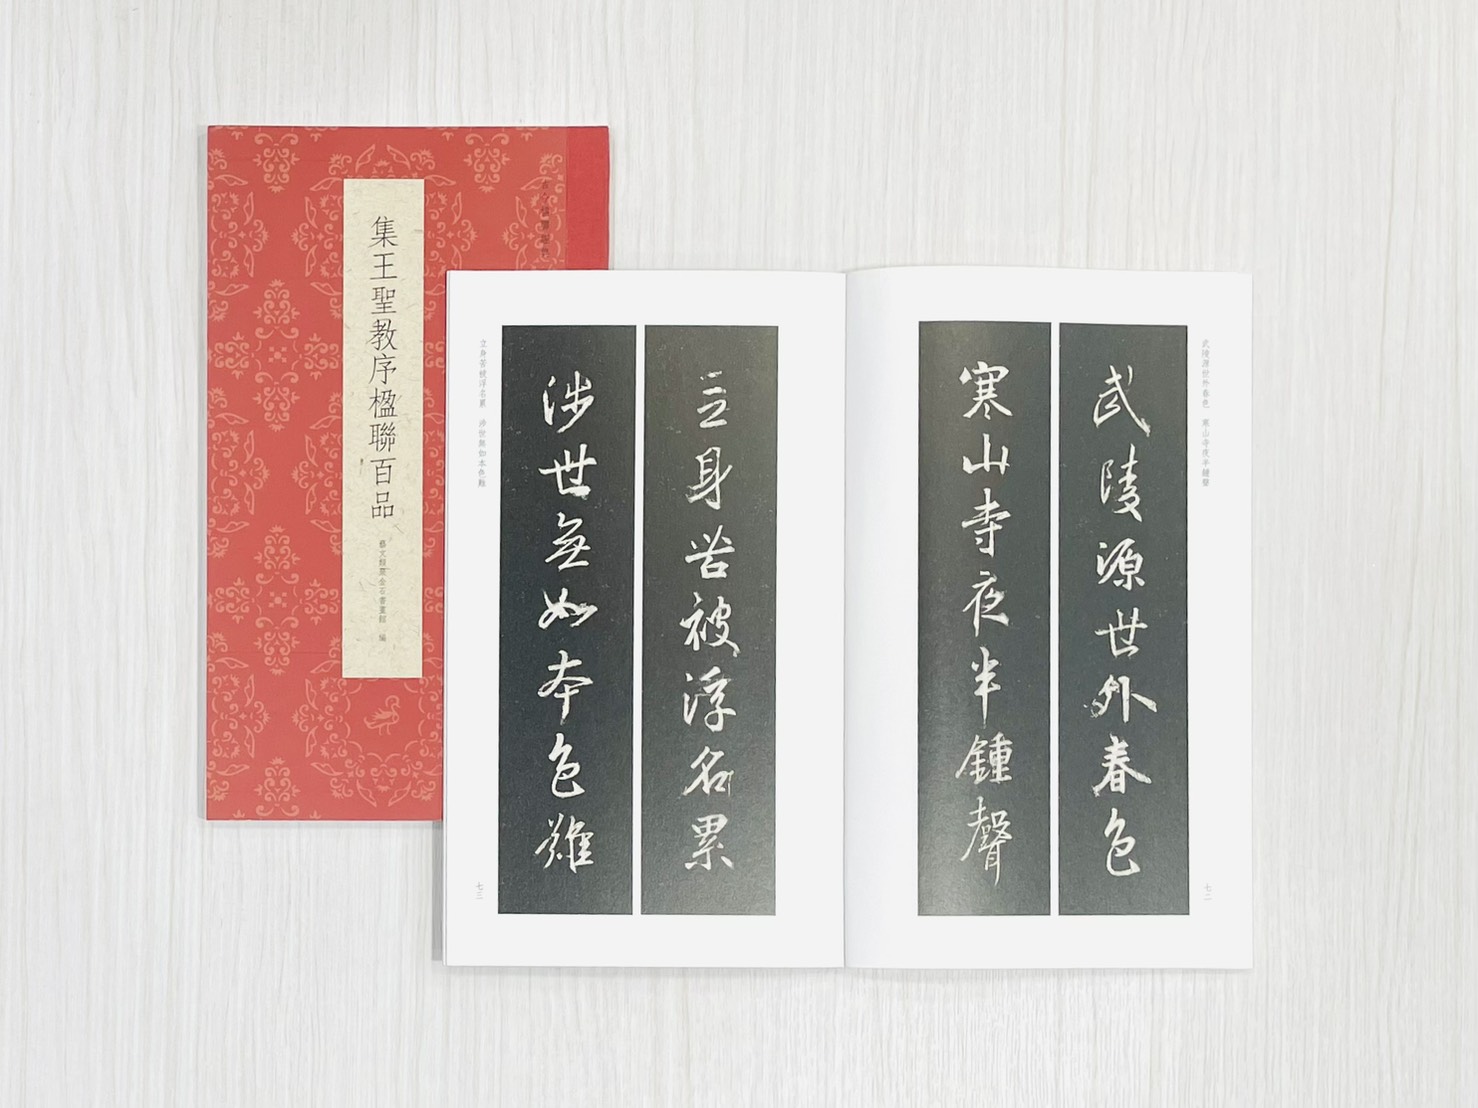 集王聖教序楹聯百品
藝文類聚金石書畫館 編
武陵源世外春色 寒山寺夜半鍾聲
武陵源世外春色
寒山寺夜半鍾聲
七二
立身苦被浮名累
涉世無如本色難
立身苦被浮名累 涉世無如本色難
七三